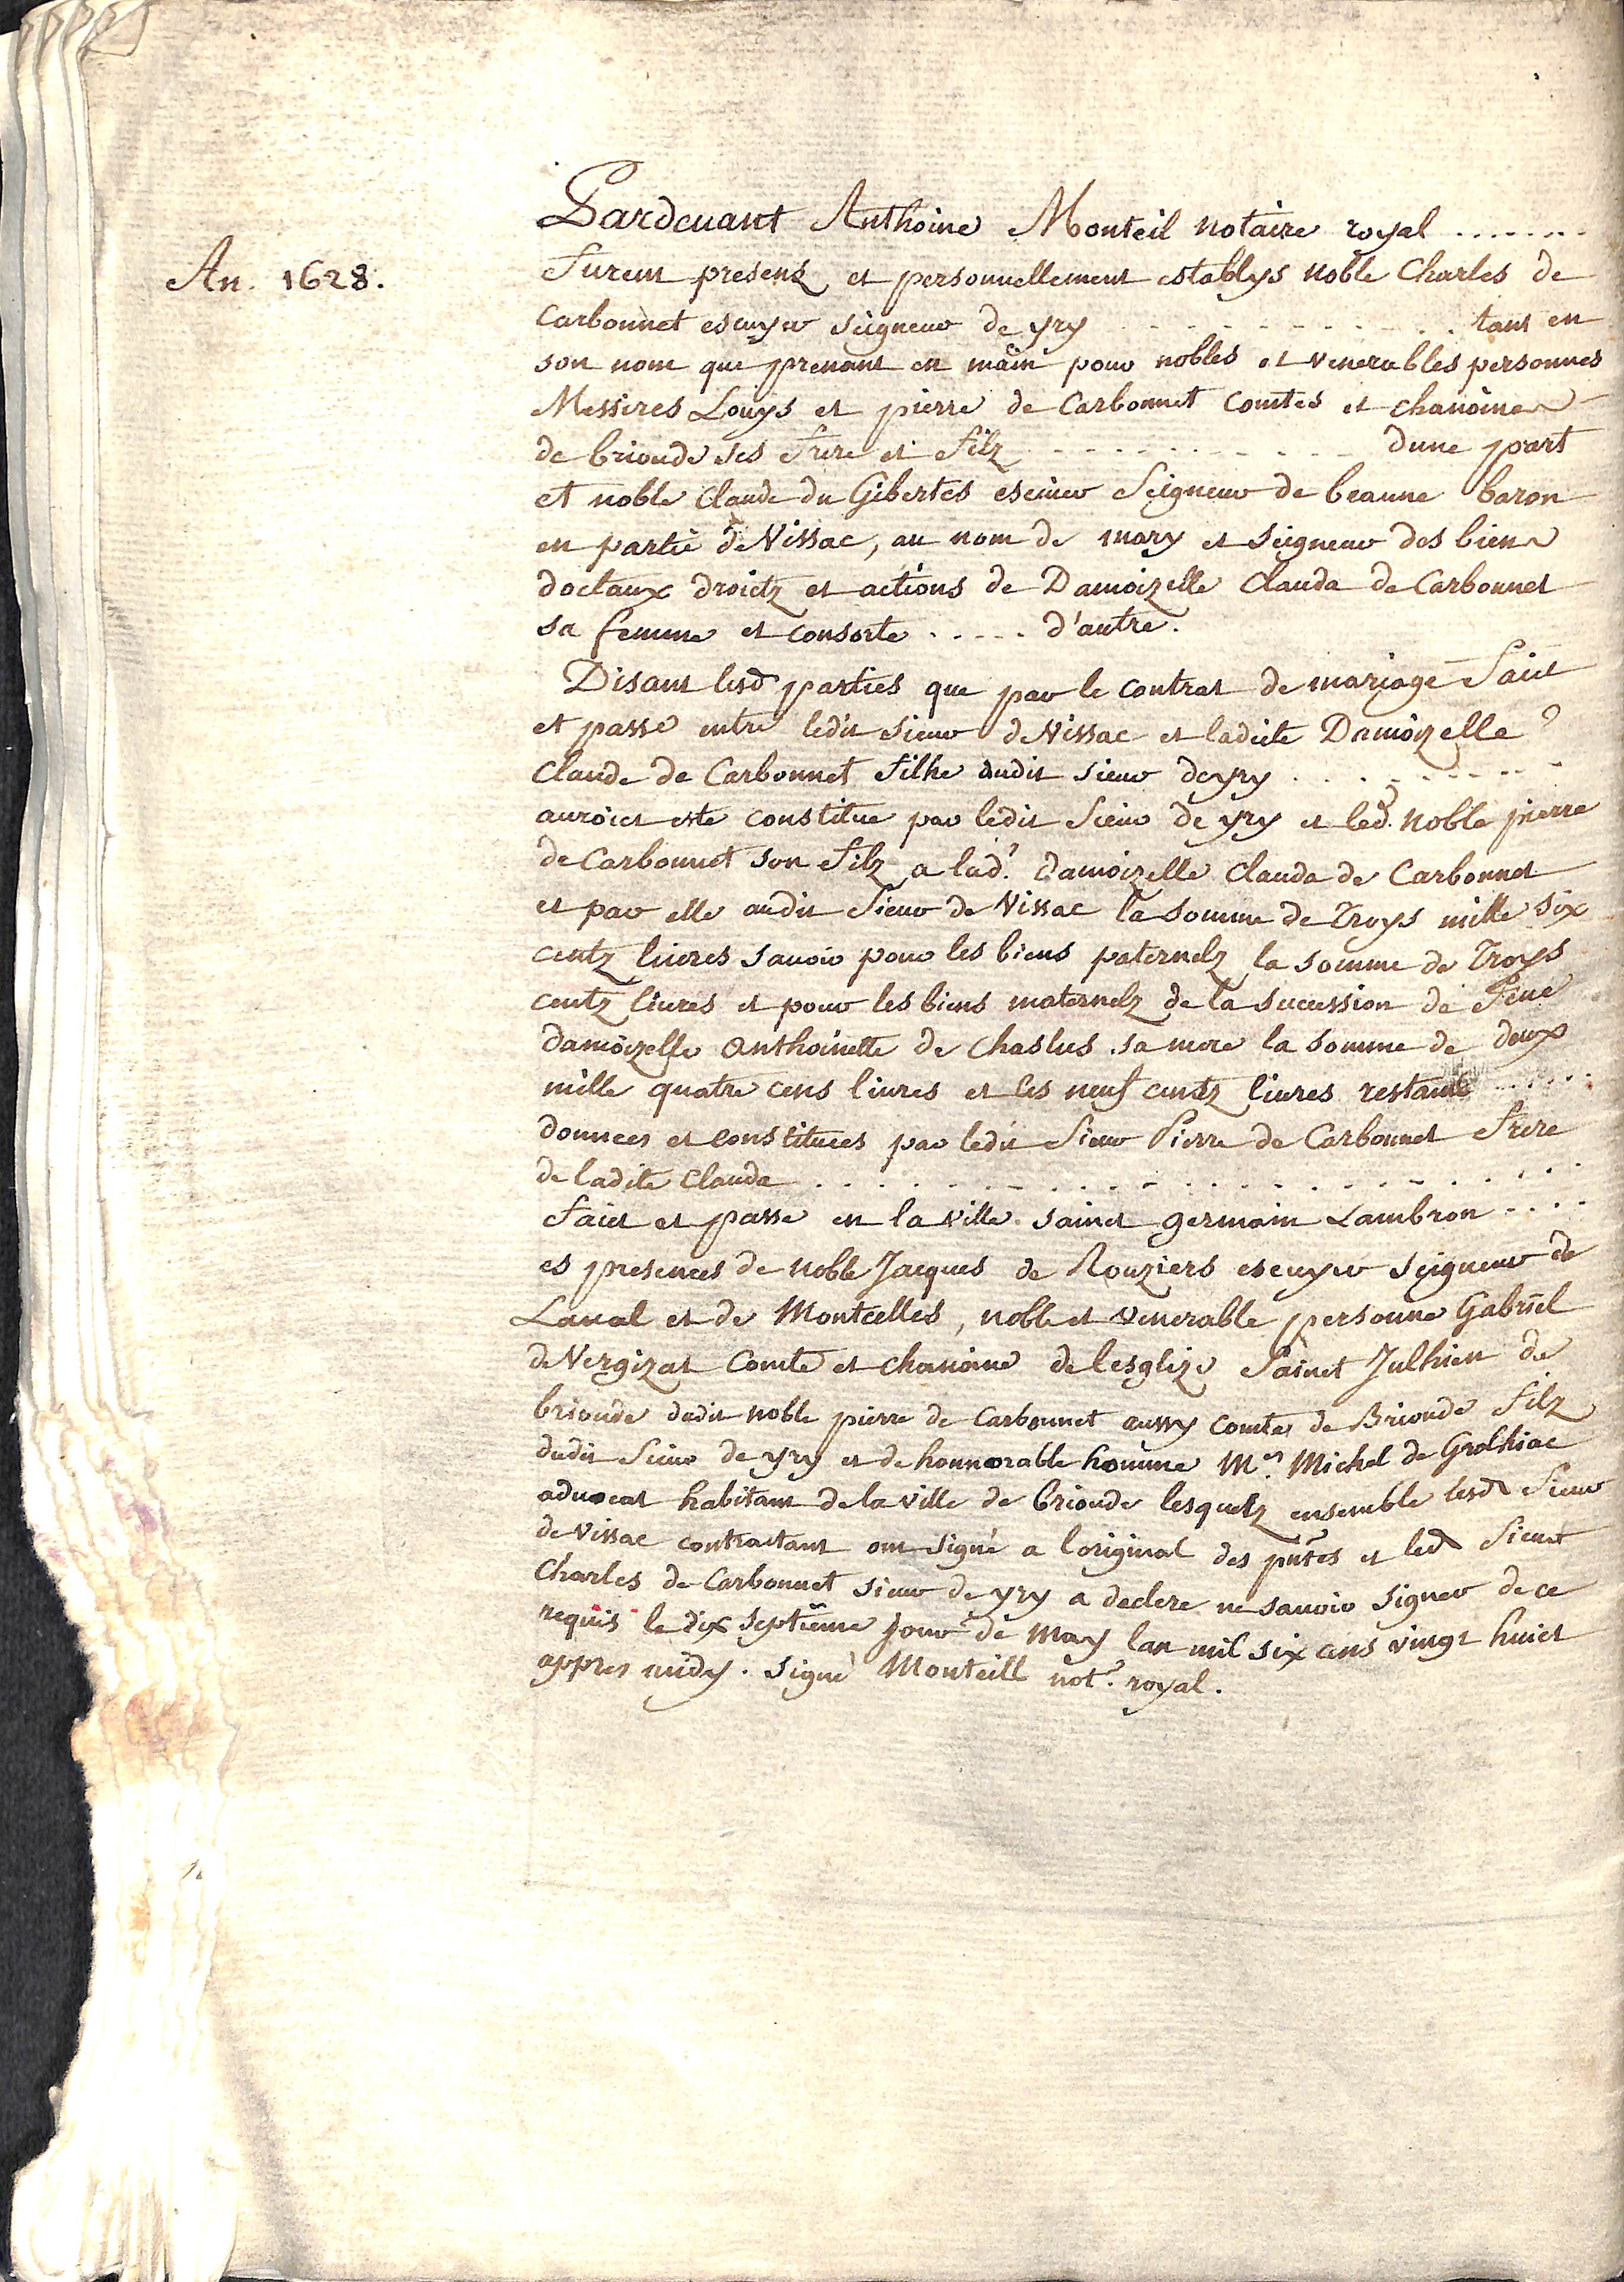 Pardeuant Anthoine Monteil notaire royal ........
An. 1628.
furent presens et personnellement establys noble Charles de
Carbonnet escuyer seigneur de yry - - - - - - - - - - - . tant en
son nom que prenant en main pour nobles et venerables personnes
Messires Louys et pierre de Carbonnet Comtes et chanoines
de brioude ses frere et filz - - - - - - - - - - - - dune part
et noble Claude du Gibertes escuier Seigneur de beaune baron
en partie de Vissac, au nom de mary et seigneur des biens
doctaux droictz et actions de Damoizelle Clauda de Carbonnet
sa femme et consorte ..... d'autre.
Disant lesd parties que par le contrat de mariage faict
et passé entre ledit sieur de Vissac et ladicte Damoizelle
Claude de Carbonnet filhe dudit sieur deyry . . . . - - - - - -
auroict este constitue par ledit Sieur de yry et led. noble pierre
de Carbonnet son filz a lad. damoizelle Clauda de Carbonnet
et par elle audit Sieur de Vissac la somme de troys mille six
centz liures sauoir pour les biens paternelz la somme de troys
centz liures et pour les biens maternelz de la sucession de feue
damoizelle Anthoinette de Chaslus sa mere la somme de deux
mille quatre cens liures et les neuf centz liures restant .....
données et constituees par ledit Sieur Pierre de Carbonnet frere
de ladite Clauda . . . . . . - . . - . . . . . . . . . . . .
faict et passe en la ville sainct germain Lambron ....
es presences de noble Jacques de Rouziers escuyer seigneur de
Laual et de Montcelles, noble et venerable personne Gabriel
de Vergizat Comte et chanoine de lesglize sainct Julhien de
brioude dudit noble pierre de Carbonnet aussy comte de Brioude filz
dudit Sieur de yry et de honnorable homme Mre. Michel de Grolhiac
aduocat habitant de la ville de brioude lesquelz ensemble lesd Sieur
de Vissac contractant ont signé a loriginal des pntes et led Sieur
Charles de Carbonnet sieur de yry a declere ne sauoir signer de ce
requis le dix septieme jour de may lan mil six cens vingt huict
appres midy. signé Monteill not. royal.